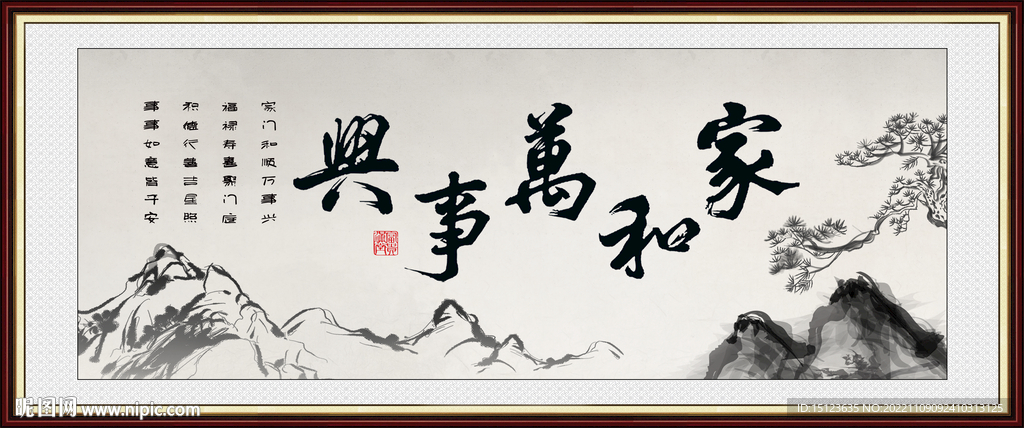 家和萬事興
家门和顺万事兴
福禄寿喜聚门庭
积德行善三星照
事事如意皆平安
昵图网 www.nipic.com
ID:15123635 NO:20221109092410313125